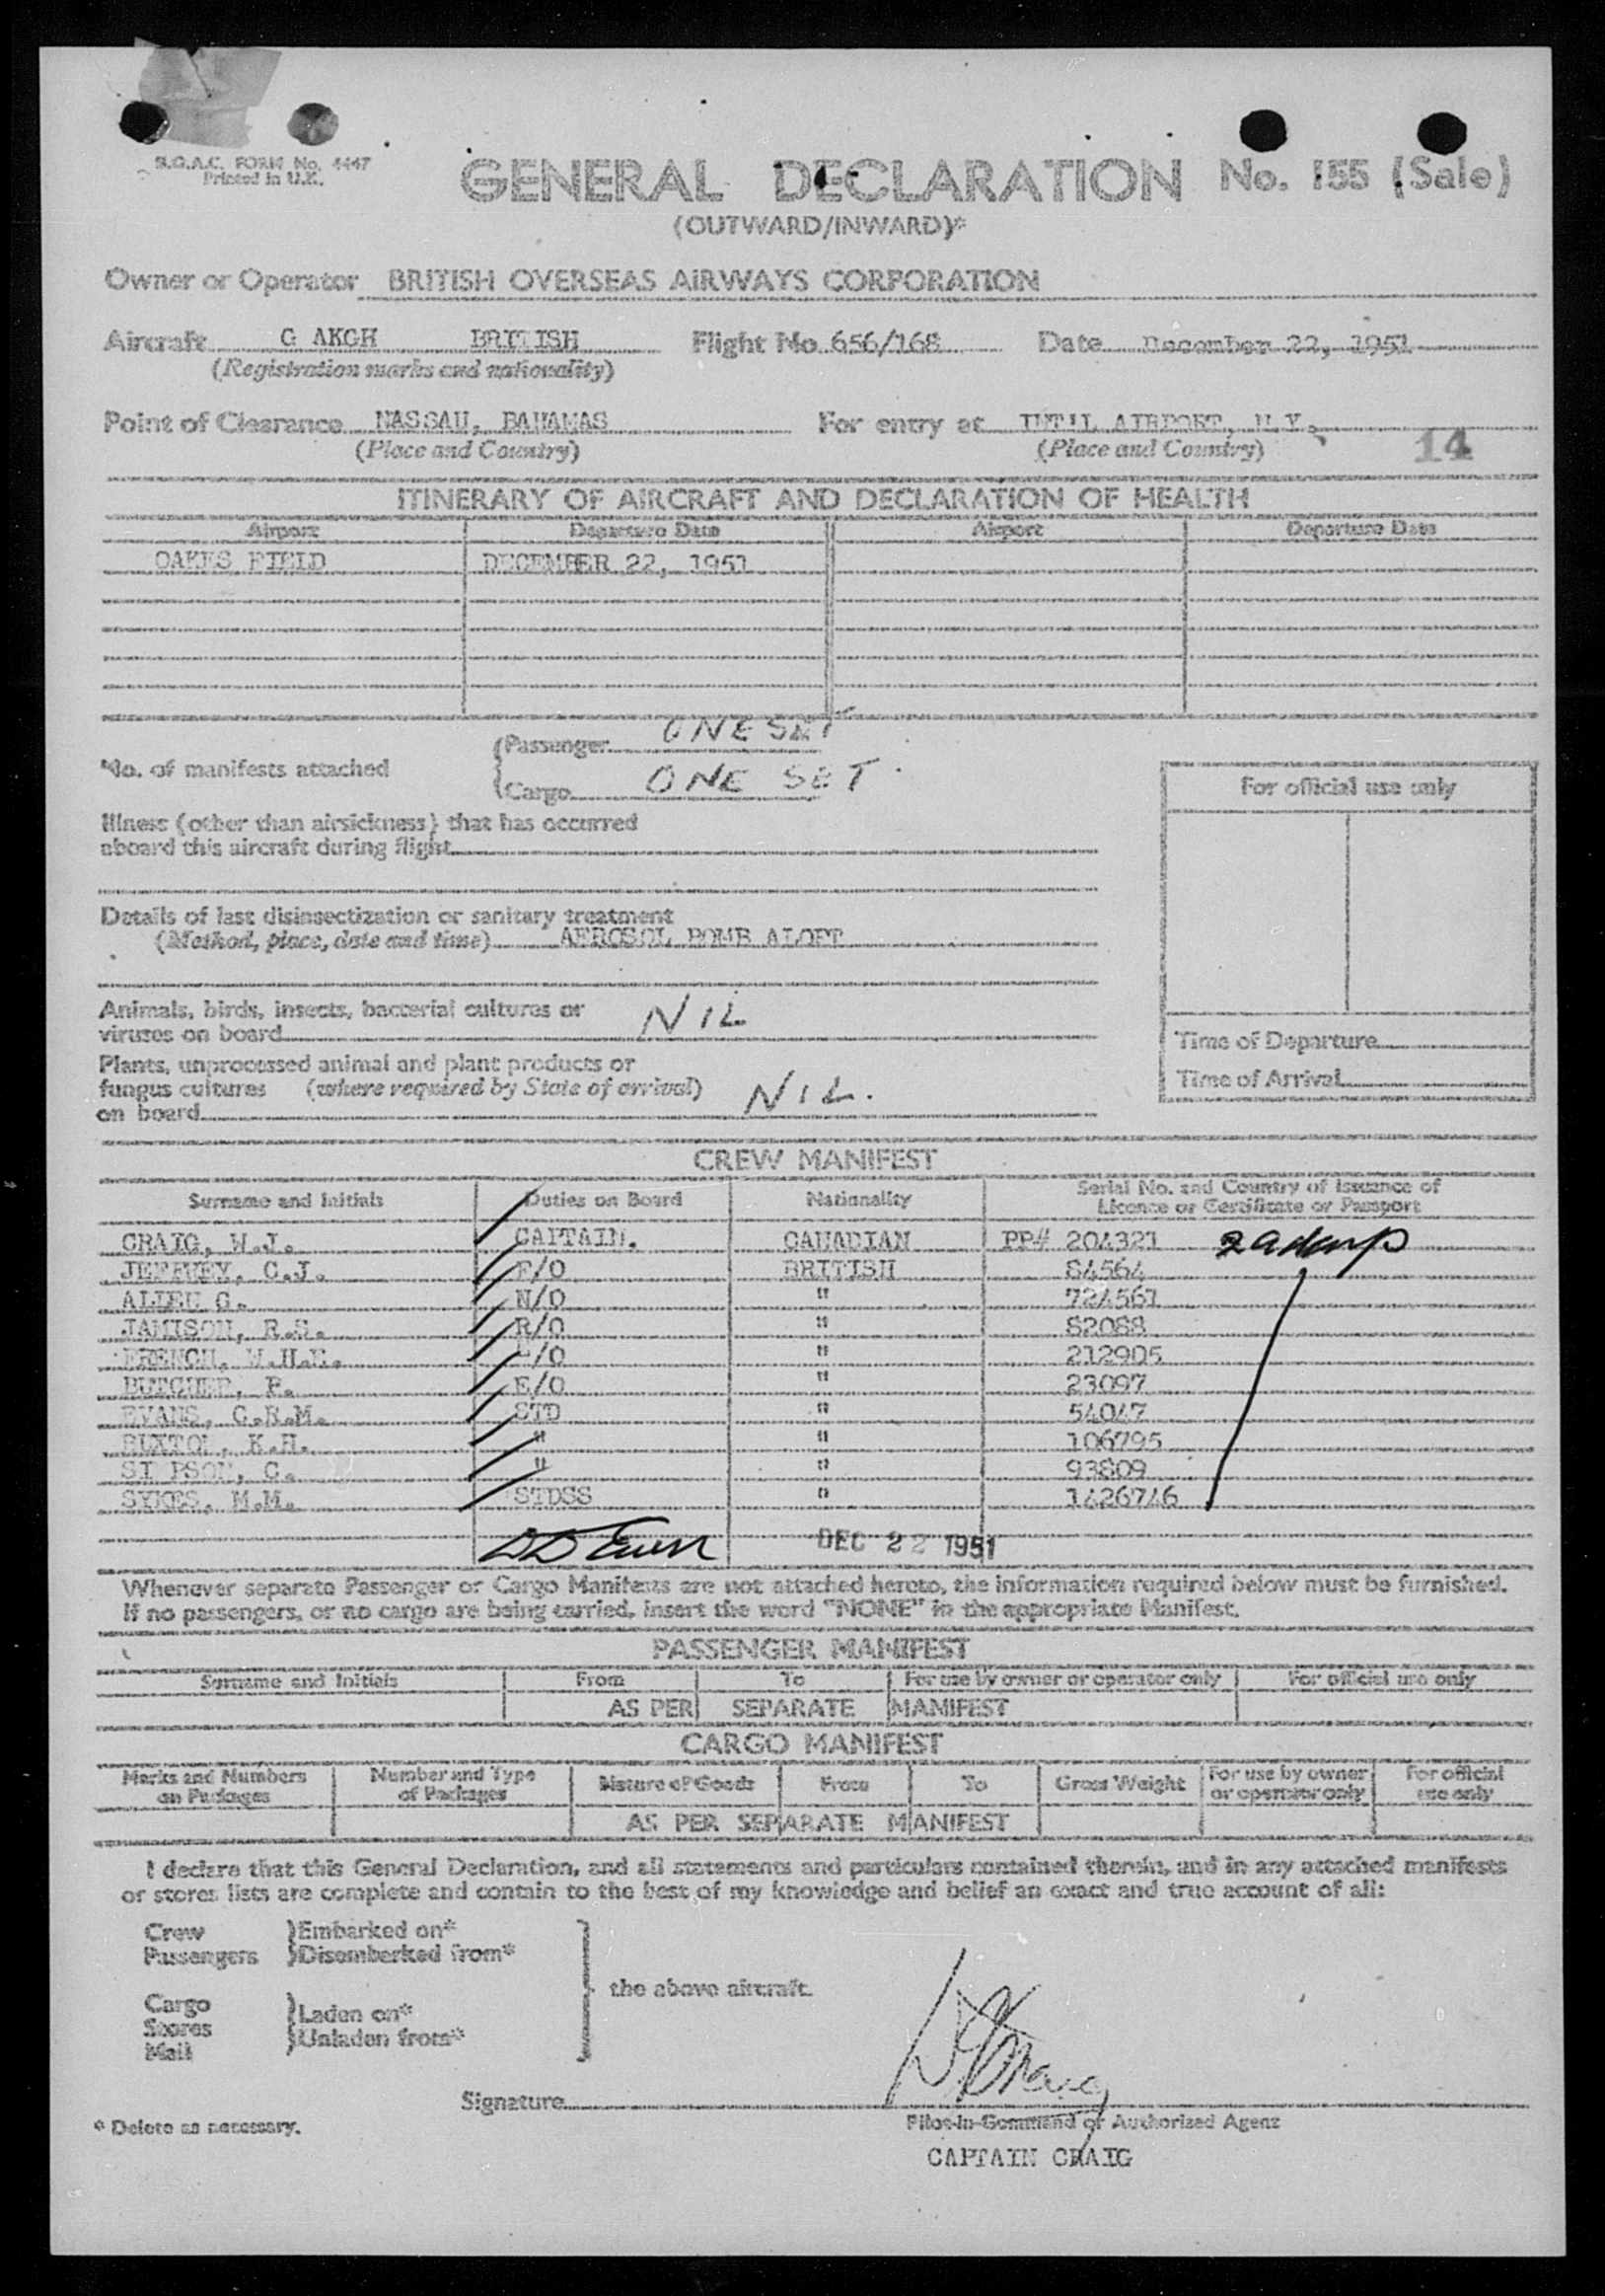 B.O.A.C. FORM No. 4447
Printed in U.K.
GENERAL DECLARATION No. 155 (Sale)
(OUTWARD/INWARD)*
Owner or Operator BRITISH OVERSEAS AIRWAYS CORPORATION
Aircraft G AKGH BRITISH Flight No. 656/168 Date December 22, 1951
(Registration marks and nationality)
Point of Clearance NASSAU, BAHAMAS For entry at INT'L AIRPORT, N.Y.
(Place and Country) (Place and Country) 14
ITINERARY OF AIRCRAFT AND DECLARATION OF HEALTH
Airport Departure Date Airport Departure Date
OAKES FIELD DECEMBER 22, 1951
No. of manifests attached
Passenger ONE SET
Cargo ONE SET.
For official use only
Illness (other than airsickness) that has occurred
aboard this aircraft during flight
Details of last disinsectization or sanitary treatment
(Method, place, date and time) AEROSOL BOMB ALOFT
Animals, birds, insects, bacterial cultures or
viruses on board NIL
Time of Departure
Plants, unprocessed animal and plant products or
fungus cultures (where required by State of arrival) NIL.
on board
Time of Arrival
CREW MANIFEST
Surname and Initials Duties on Board Nationality Serial No. and Country of Issuance of
Licence or Certificate or Passport
CRAIG, W.J. CAPTAIN. CANADIAN PP# 204321
JEFFREY, C.J. F/O BRITISH 84564
ALLEN G. N/O " 724561
JAMISON, R.S. R/O " 82088
FRENCH, W.H. /O " 212905
BUTCHER, F. E/O " 23097
EVANS, C.R.M. STD " 54047
BUXTON, K.H. " " 106795
SI PSON, C. " " 93809
SYKES, M.M. STDSS " 1426746
DEC 22 1951
Whenever separate Passenger or Cargo Manifests are not attached hereto, the information required below must be furnished.
If no passengers, or no cargo are being carried, insert the word "NONE" in the appropriate Manifest.
PASSENGER MANIFEST
Surname and Initials From To For use by owner or operator only For official use only
AS PER SEPARATE MANIFEST
CARGO MANIFEST
Marks and Numbers on Packages Number and Type of Packages Nature of Goods From To Gross Weight For use by owner or operator only For official use only
AS PER SEPARATE MANIFEST
I declare that this General Declaration, and all statements and particulars contained therein, and in any attached manifests
or stores lists are complete and contain to the best of my knowledge and belief an exact and true account of all:
Crew Embarked on*
Passengers Disembarked from*
the above aircraft.
Cargo Laden on*
Stores Unladen from*
Mail
Signature
* Delete as necessary. Pilot-in-Command or Authorised Agent
CAPTAIN CRAIG